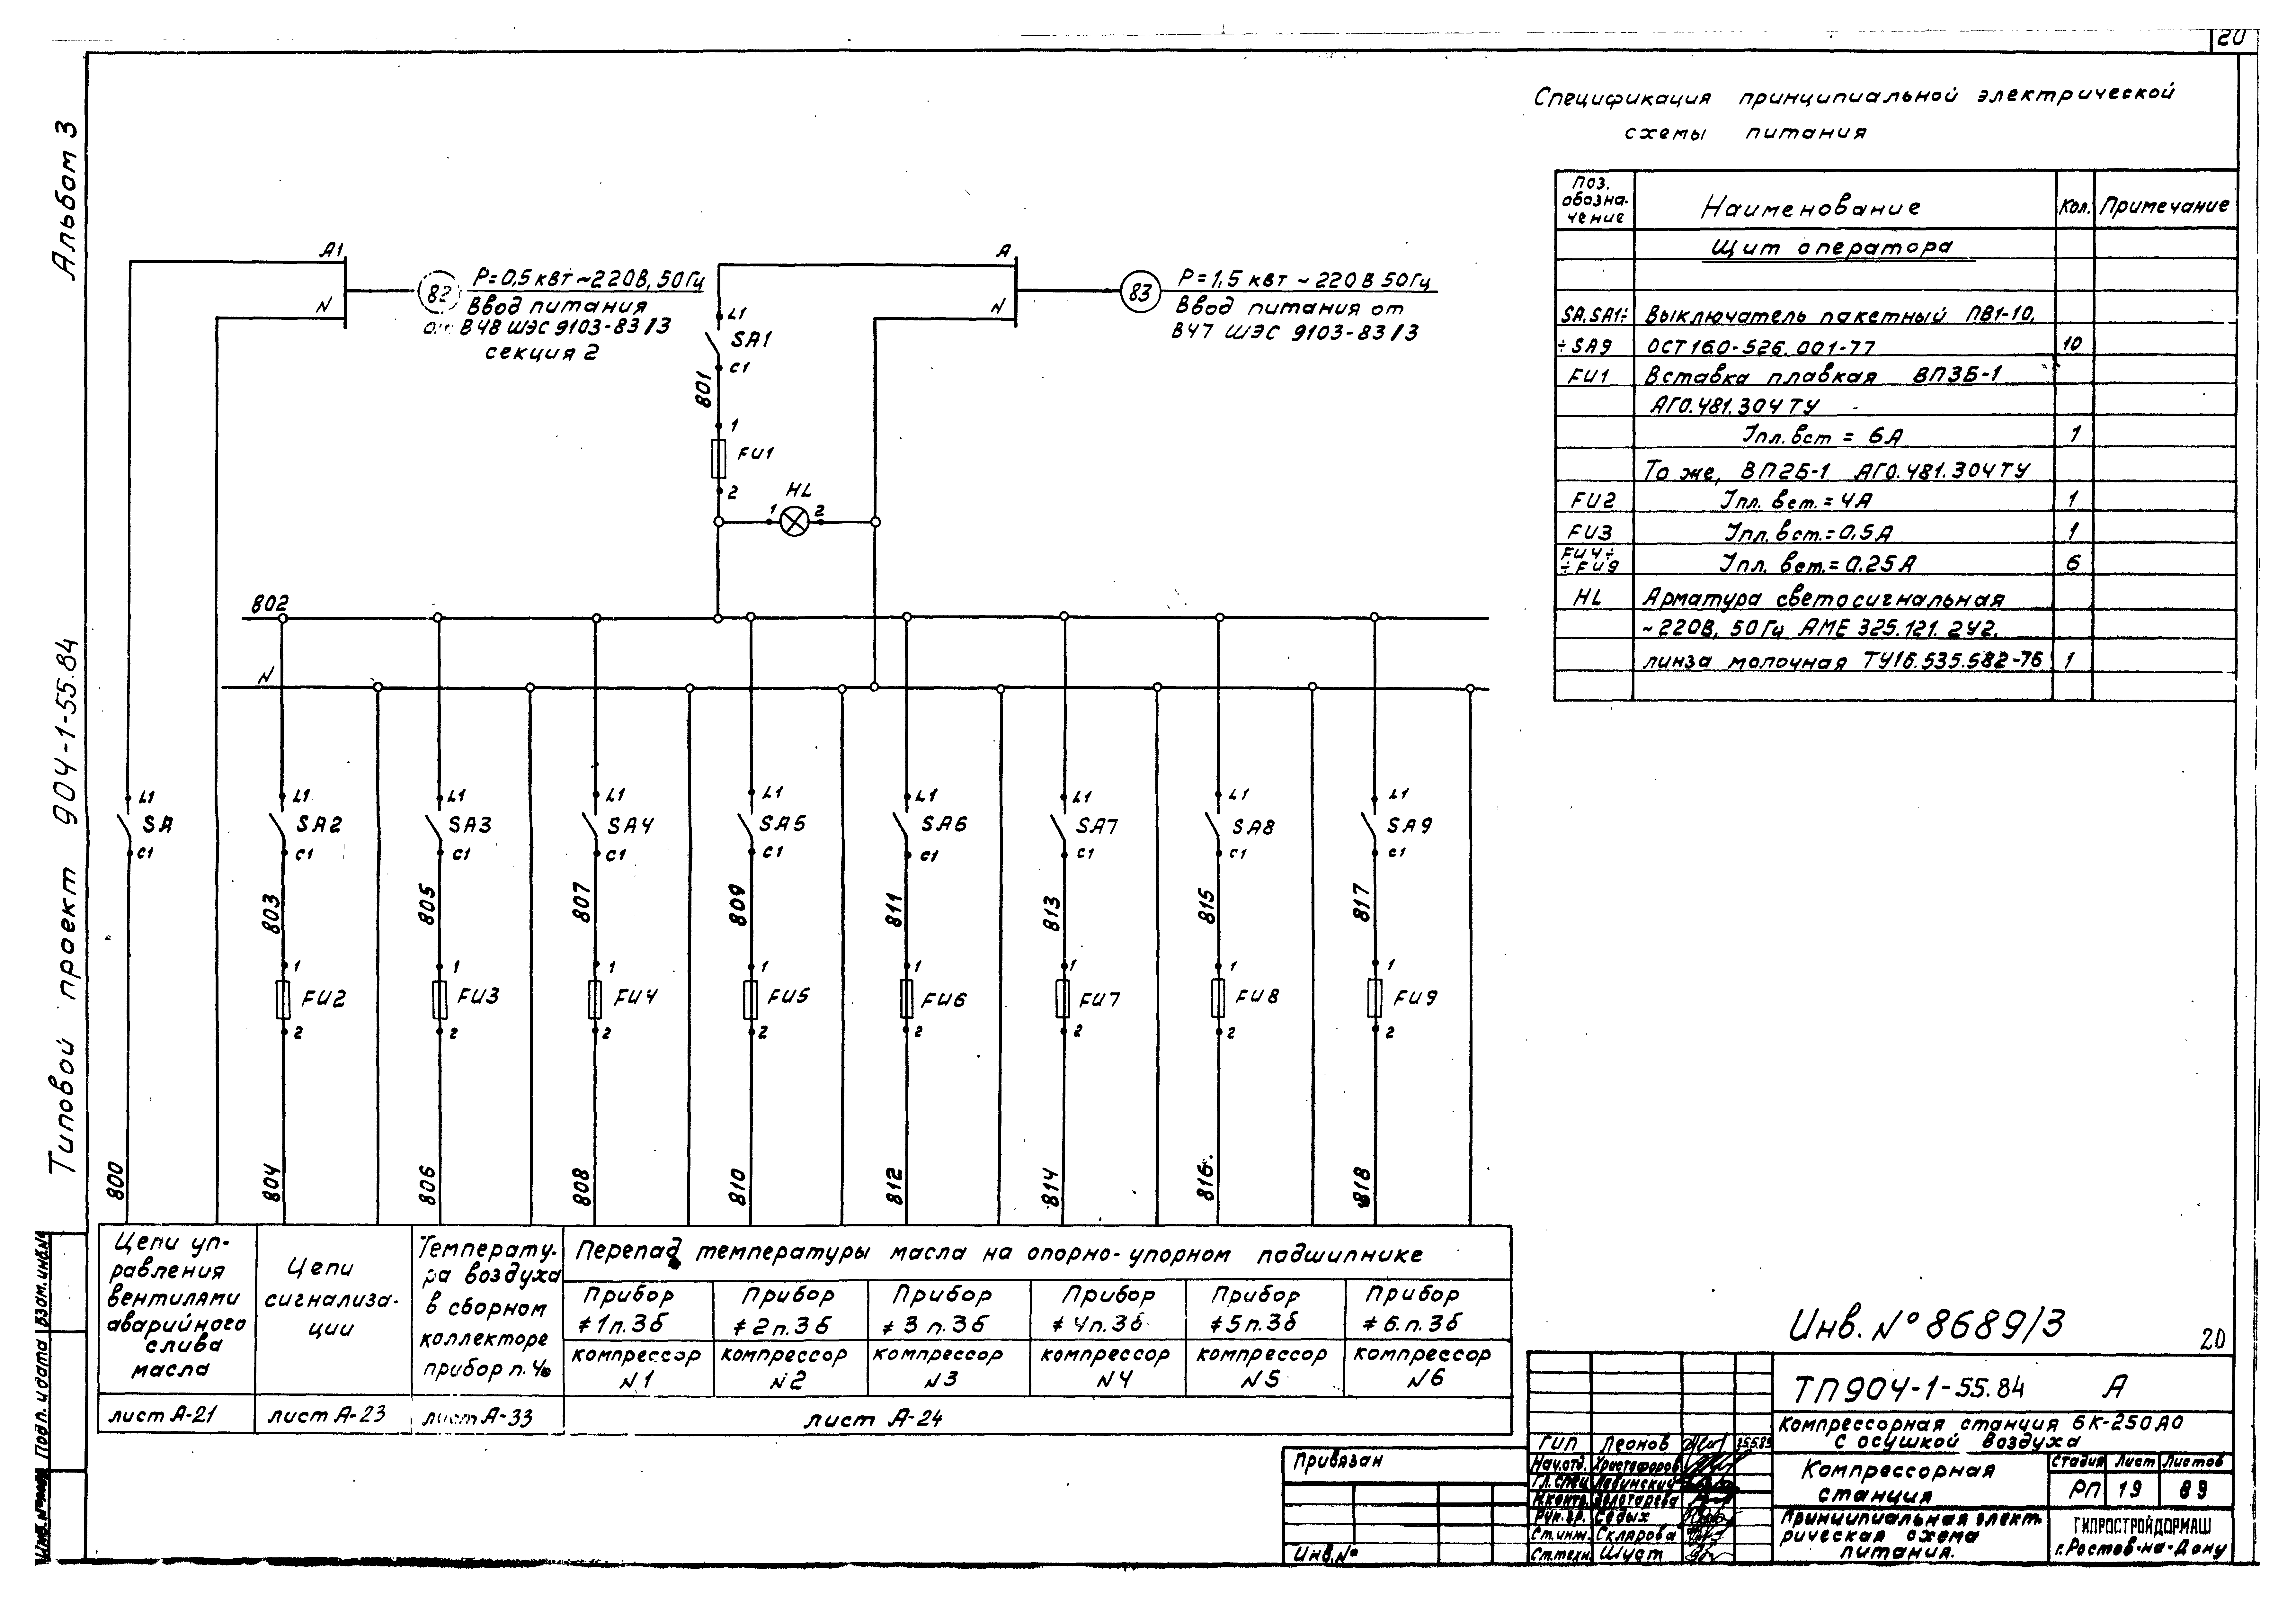 20
Альбом 3
Типовой проект 904-1-55.84
Спецификация принципиальной электрической
схемы питания
Поз. обозна-чение
Наименование
Кол.
Примечание
Щит оператора
SA,SA1÷ Выключатель пакетный ПВ1-10,
÷SA9 ОСТ 16.0-526.001-77 10
FU1 Вставка плавкая ВП3Б-1
АГ0.481.304 ТУ
Iпл.вст = 6А 1
То же, ВП2Б-1 АГ0.481.304ТУ
FU2 Iпл. вст. = 4А 1
FU3 Iпл. вст. = 0,5А 1
FU4÷
÷FU9 Iпл. вст. = 0.25А 6
HL Арматура светосигнальная
~220В, 50Гц АМЕ 325.121.2У2.
линза молочная ТУ16.535.582-76 1
A1
N
82
P=0,5 квт ~220В, 50Гц
Ввод питания
от В48 ШЭС 9103-83/3
секция 2
A
N
83
P=1,5 квт ~220В 50Гц
Ввод питания от
В47 ШЭС 9103-83/3
L1
SA1
C1
801
1
FU1
2
HL
1 2
802
N
L1 L1 L1 L1 L1 L1 L1 L1 L1
SA SA2 SA3 SA4 SA5 SA6 SA7 SA8 SA9
C1 C1 C1 C1 C1 C1 C1 C1 C1
803 805 807 809 811 813 815 817
1 1 1 1 1 1 1 1
FU2 FU3 FU4 FU5 FU6 FU7 FU8 FU9
2 2 2 2 2 2 2 2
800 804 806 808 810 812 814 816 818
Цепи уп-
равления
вентилями
аварийного
слива
масла
лист А-21
Цепи
сигнализа-
ции
лист А-23
Температу-
ра воздуха
в сборном
коллекторе
прибор п. 4ю
лист А-33
Перепад температуры масла на опорно-упорном подшипнике
Прибор
≠1п.3б
компрессор
N1
Прибор
≠2п.3б
компрессор
N2
Прибор
≠3п.3б
компрессор
N3
Прибор
≠4п.3б
компрессор
N4
Прибор
≠5п.3б
компрессор
N5
Прибор
≠6.п.3б
компрессор
N6
лист А-24
Инв. № 8689/3
20
Привязан
Инв.№
ГИП Леонов
Нач.отд. Христофоров
Гл. спец. Левинский
Н.контр. Золотарева
Рук.гр. Седых
Ст.инж. Склярова
Ст.техн. Шуст
ТП904-1-55.84 А
Компрессорная станция 6К-250А0
с осушкой воздуха
Компрессорная
станция
Стадия Лист Листов
РП 19 89
Принципиальная элект-
рическая схема
питания.
ГИПРОСТРОЙДОРМАШ
г.Ростов-на-Дону
Подп. и дата
Взам. инв.№